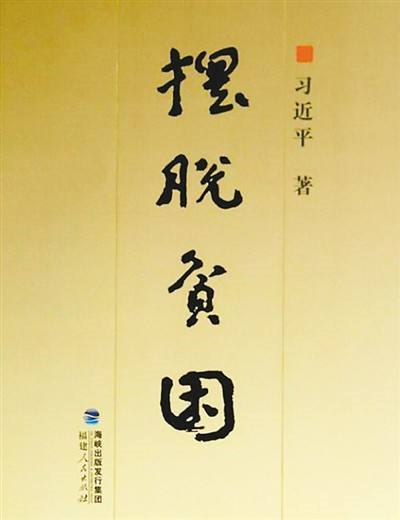 习近平 著
摆脱贫困
海峡出版发行集团
福建人民出版社